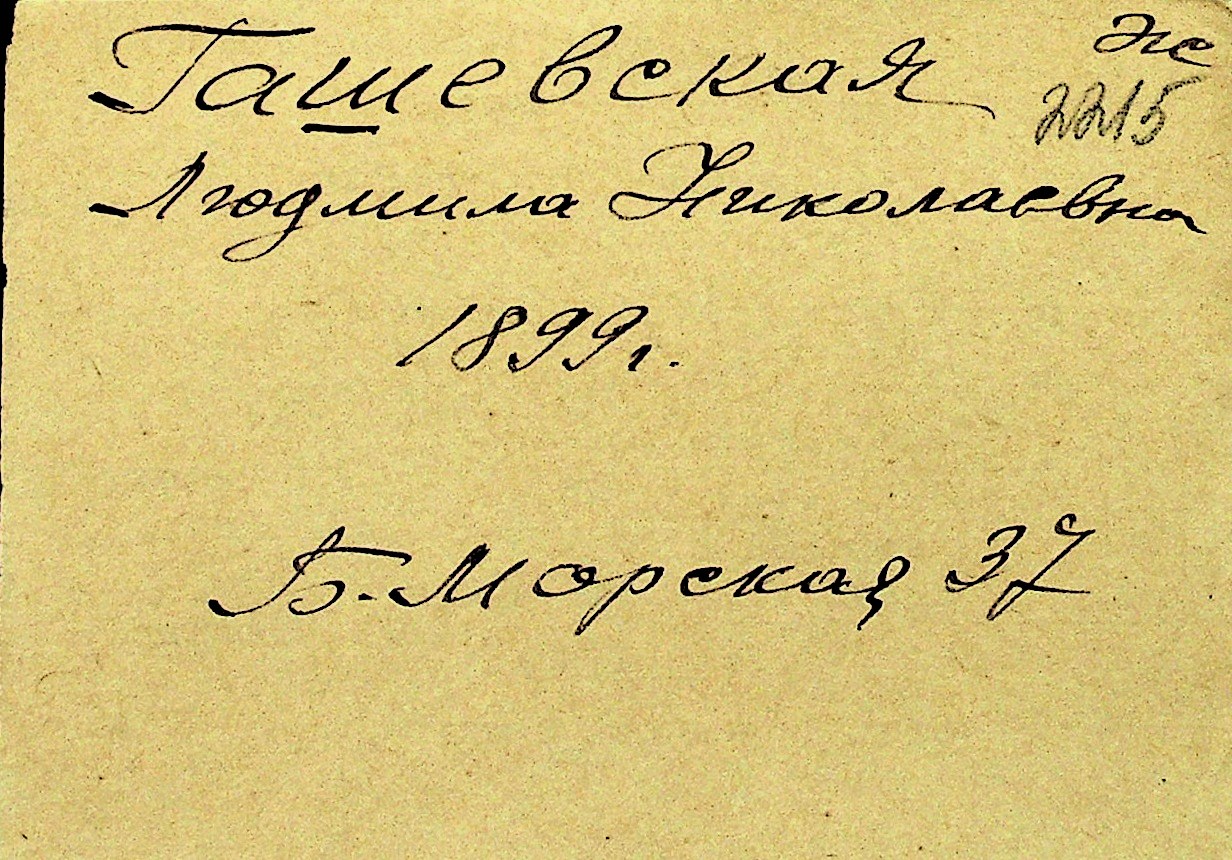 Гашевская ж
2215
Людмила Николаевна
1899г.
Б. Морская, 37